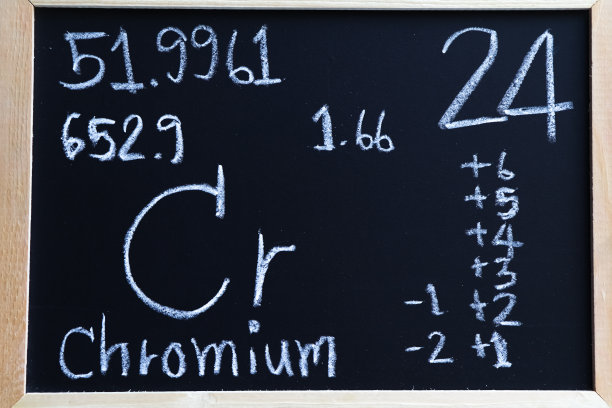 51.9961 24
652.9 1.66
+6
+5
Cr +4
+3
-1 +2
Chromium -2 +1